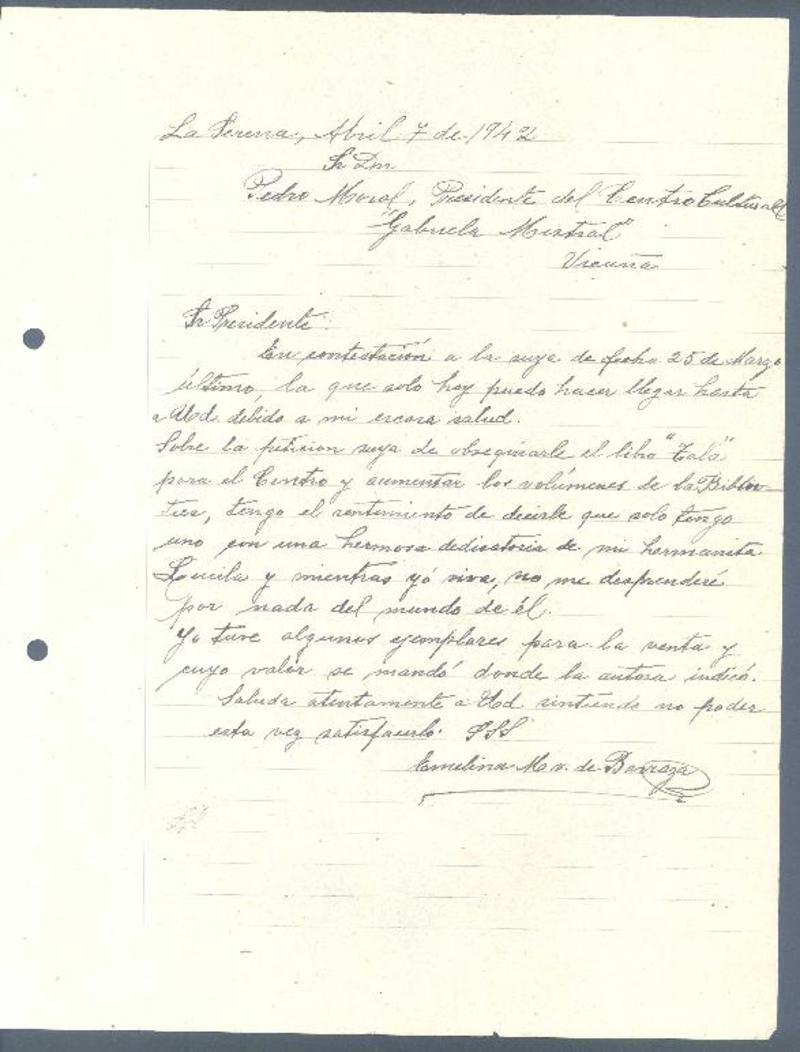 La Serena, Abril 7 de 1942
Sr Dn.
Pedro Moral, Presidente del Centro Cultural
"Gabriela Mistral"
Vicuña
Sr Presidente:
En contestación a la suya de fecha 25 de Marzo
último, la que solo hoy puedo hacer llegar hasta
a Ud. debido a mi escasa salud.
Sobre la peticion suya de obsequiarle el libro "Tala"
para el Centro y aumentar los volúmenes de la Biblio-
teca, tengo el sentimiento de decirle que solo tengo
uno con una hermosa dedicatoria de mi hermanita
Lucila y mientras yó viva, no me desprenderé
por nada del mundo de él.
Yo tuve algunos ejemplares para la venta y
cuyo valor se mandó donde la autora indicó.
Saluda atentamente a Ud. sintiendo no poder
esta vez satisfacerlo. SSS
Emelina M v. de Barraza